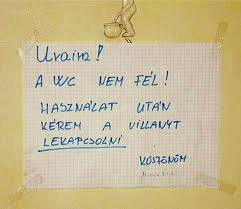 Uraim!
A WC NEM FÉL!
HASZNÁLAT UTÁN
KÉREM A VILLANYT
LEKAPCSOLNI
KÖSZÖNÖM